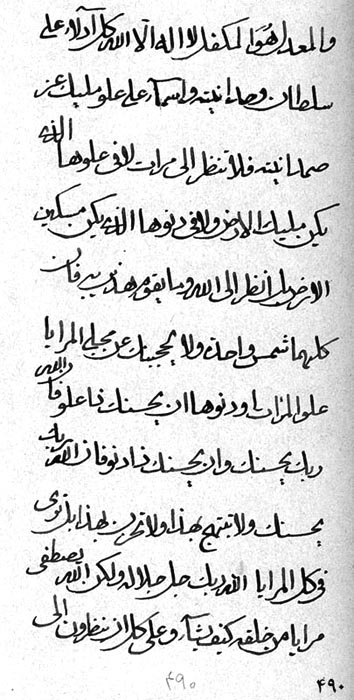 والمعدل لهو المكفل لا اله الا الله كل ادلاء على
سلطان وحدانيته واسماء على علو مليك عز
صمدانيته فلا تنظر الى مرات لا في علوها الذي
يكن مليك الارض ولا في دنوها الذي يكن مسكين
الارض بل انظر الى الله وما يقوم به فان
كلهما شمس واحدة ولا يحجبنك عن مجلي المرايا
علو المرات او دنوها ان يحسنك ذا علو فالله
ربك يحسنك وان يحسنك ذا دنو فان الله ربك
يحسنك ولا تبتهج بهذا ولا تحزن بهذا بل ترى
في كل المرايا الله ربك جل جلاله ولكن الله يصطفي
مرايا من خلقه كيف يشآء وعلى كل ان ينظرون الى
۴۹۰
۴۹۰